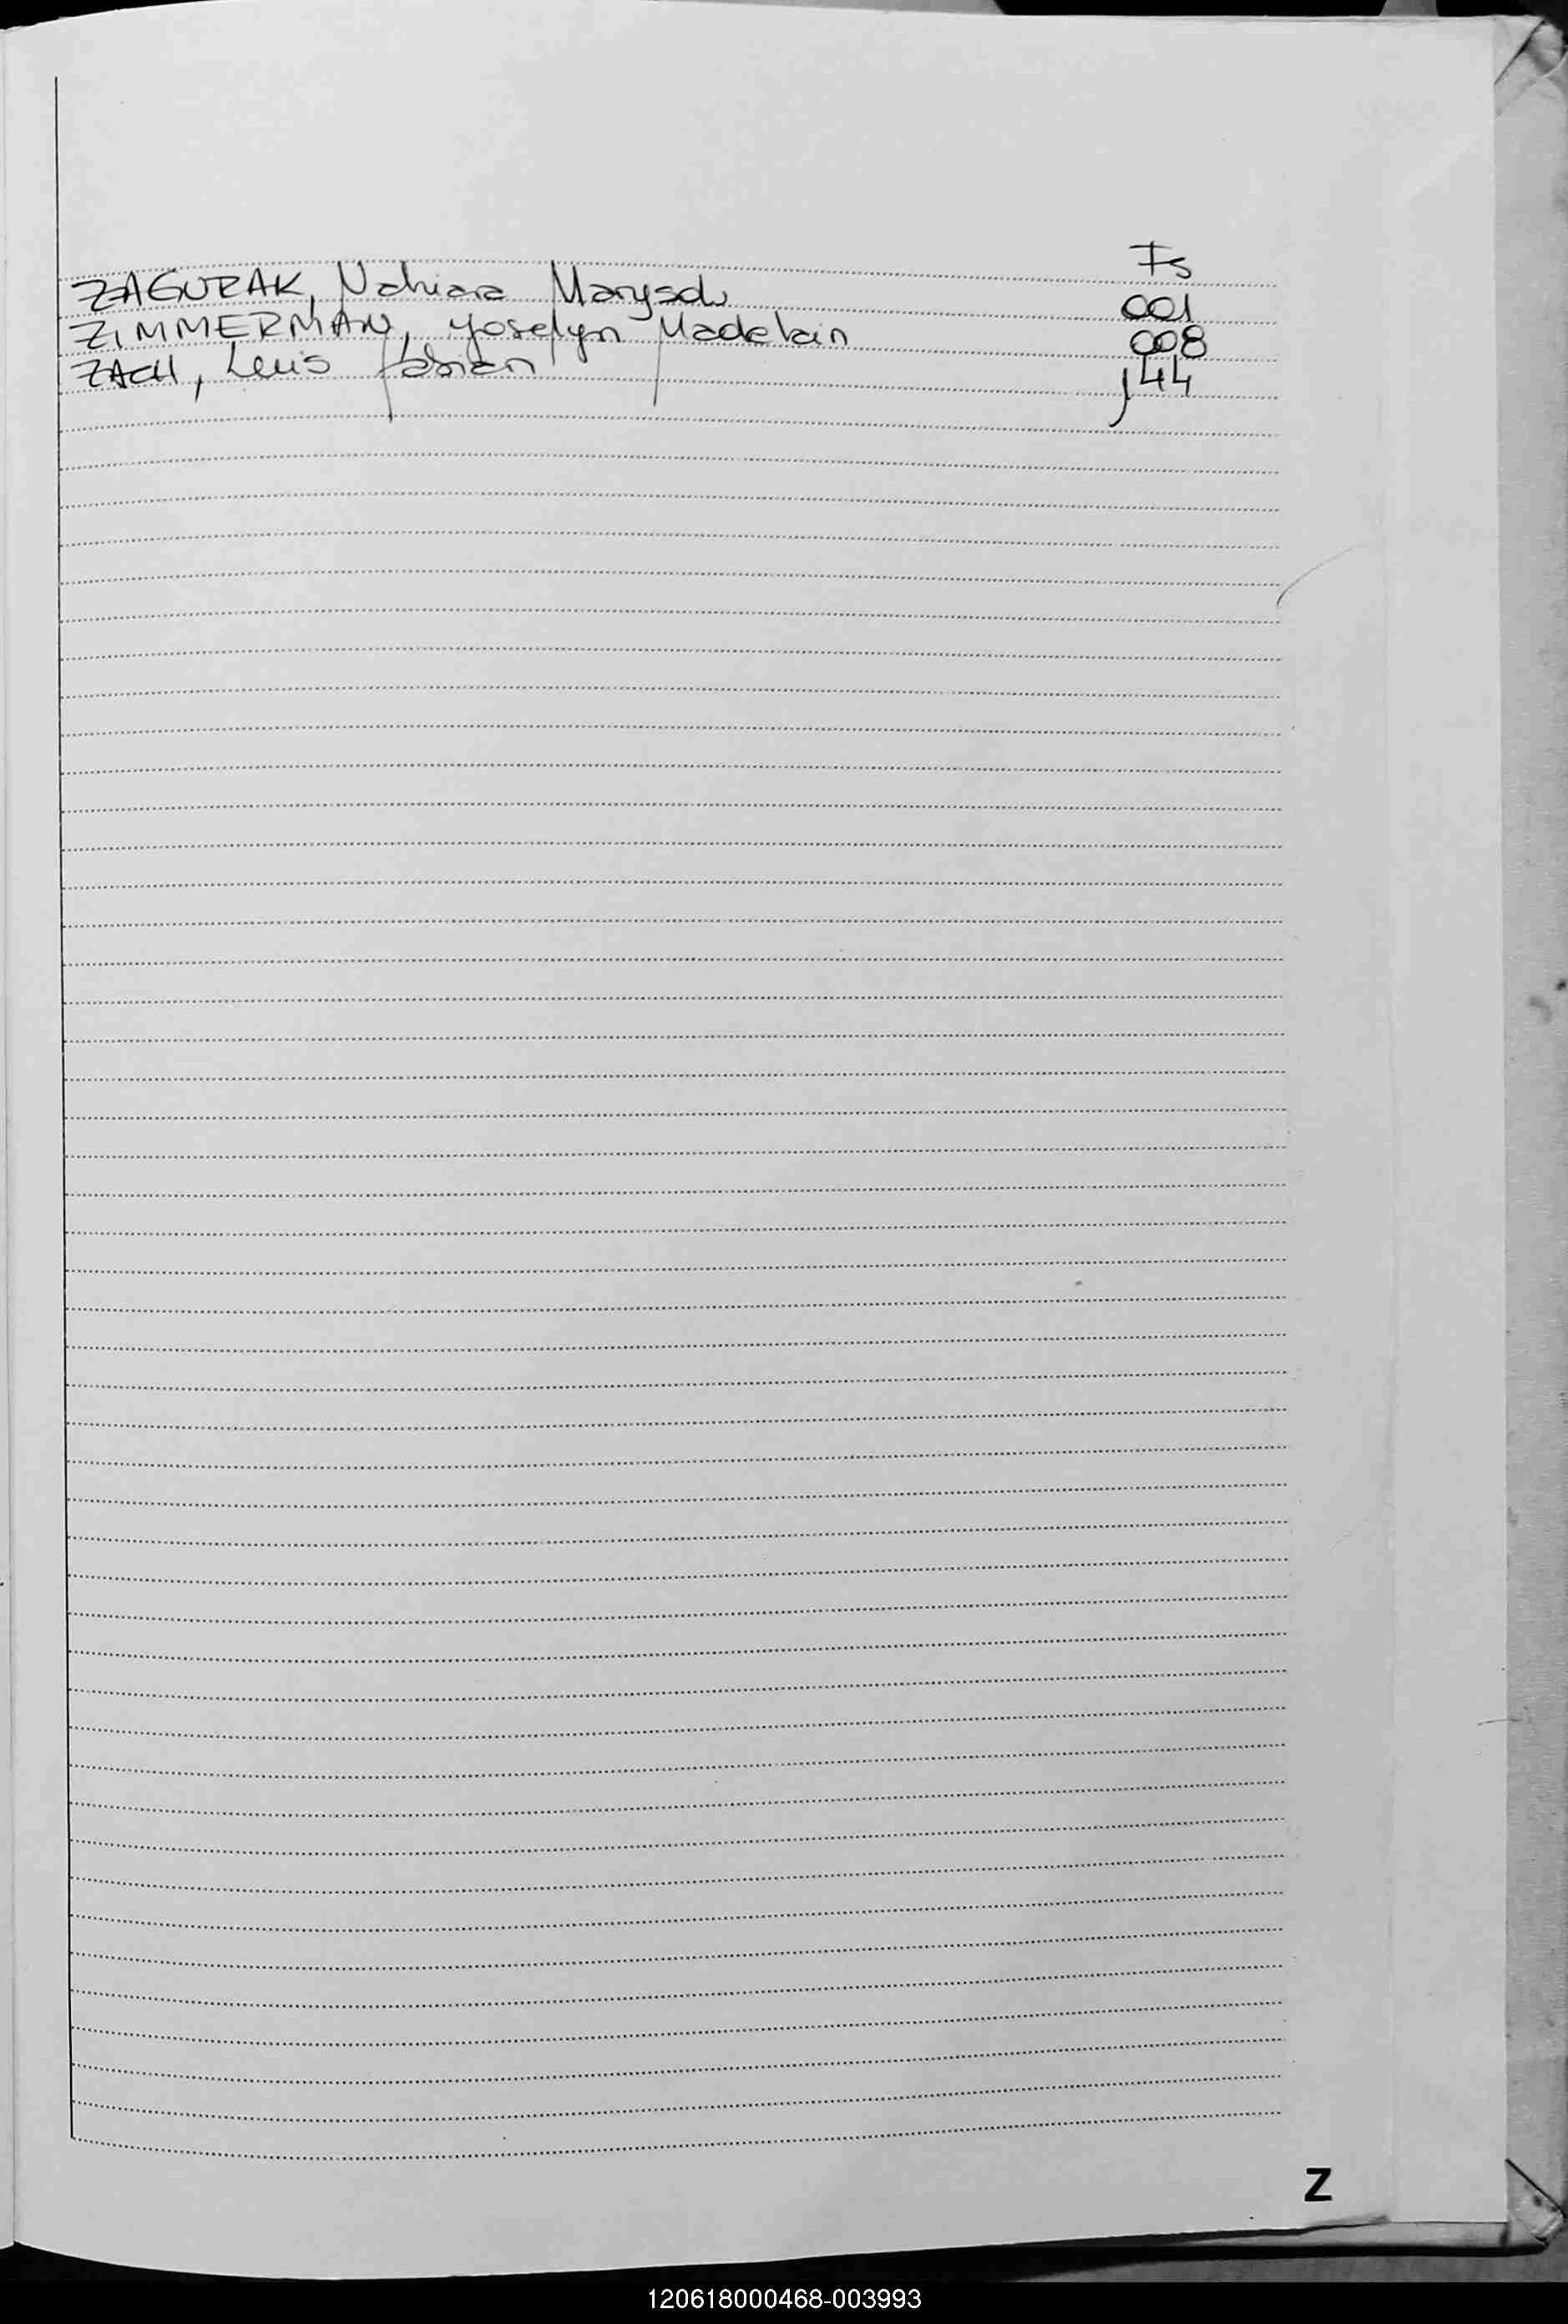 Fs
ZAGURAK, Nahiara Marysol 001
ZIMMERMAN, Yoselyn Madelain 008
ZACH, Luis Fabian 144
Z
120618000468-003993